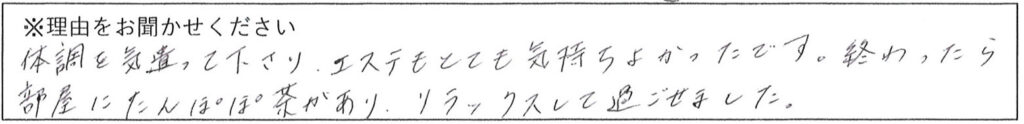 ※理由をお聞かせください
体調を気遣って下さり、エステもとても気持ちよかったです。終わったら
部屋にたんぽぽ茶があり、リラックスして過ごせました。